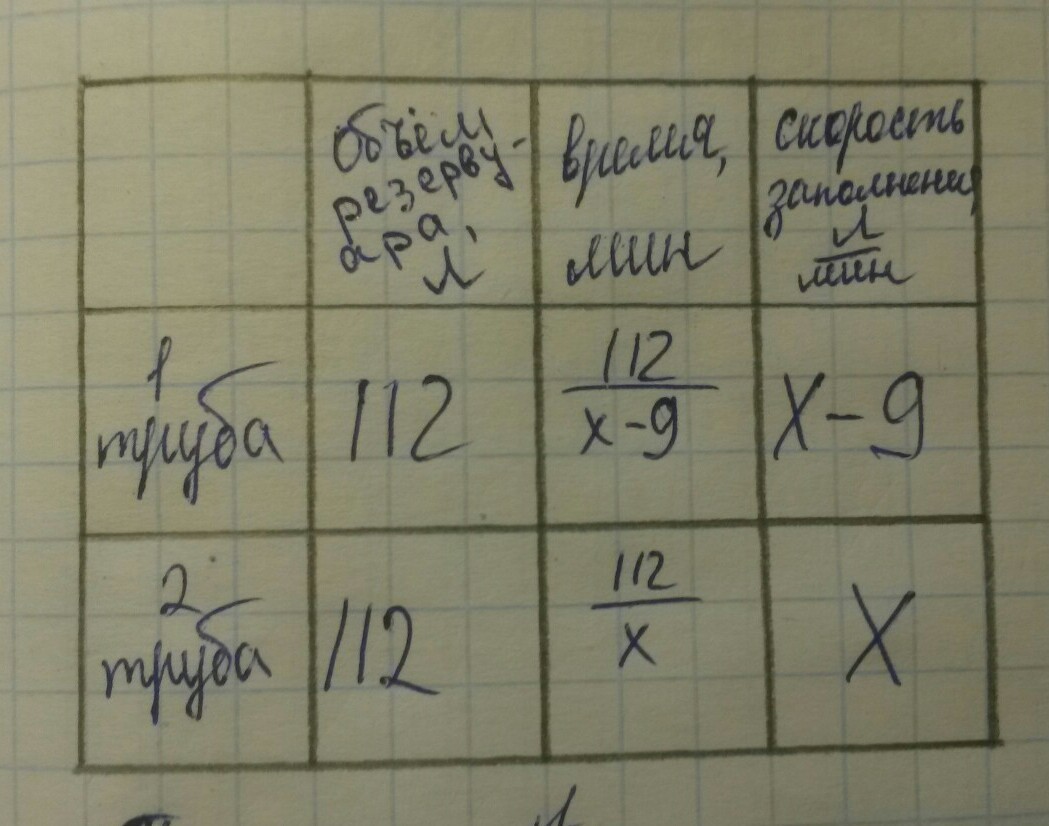 Объём
резерву-
ара,
л
время,
мин
скорость
заполнени
л
мин
1
труба
112
112
x-9
x-9
2
труба
112
112
x
x